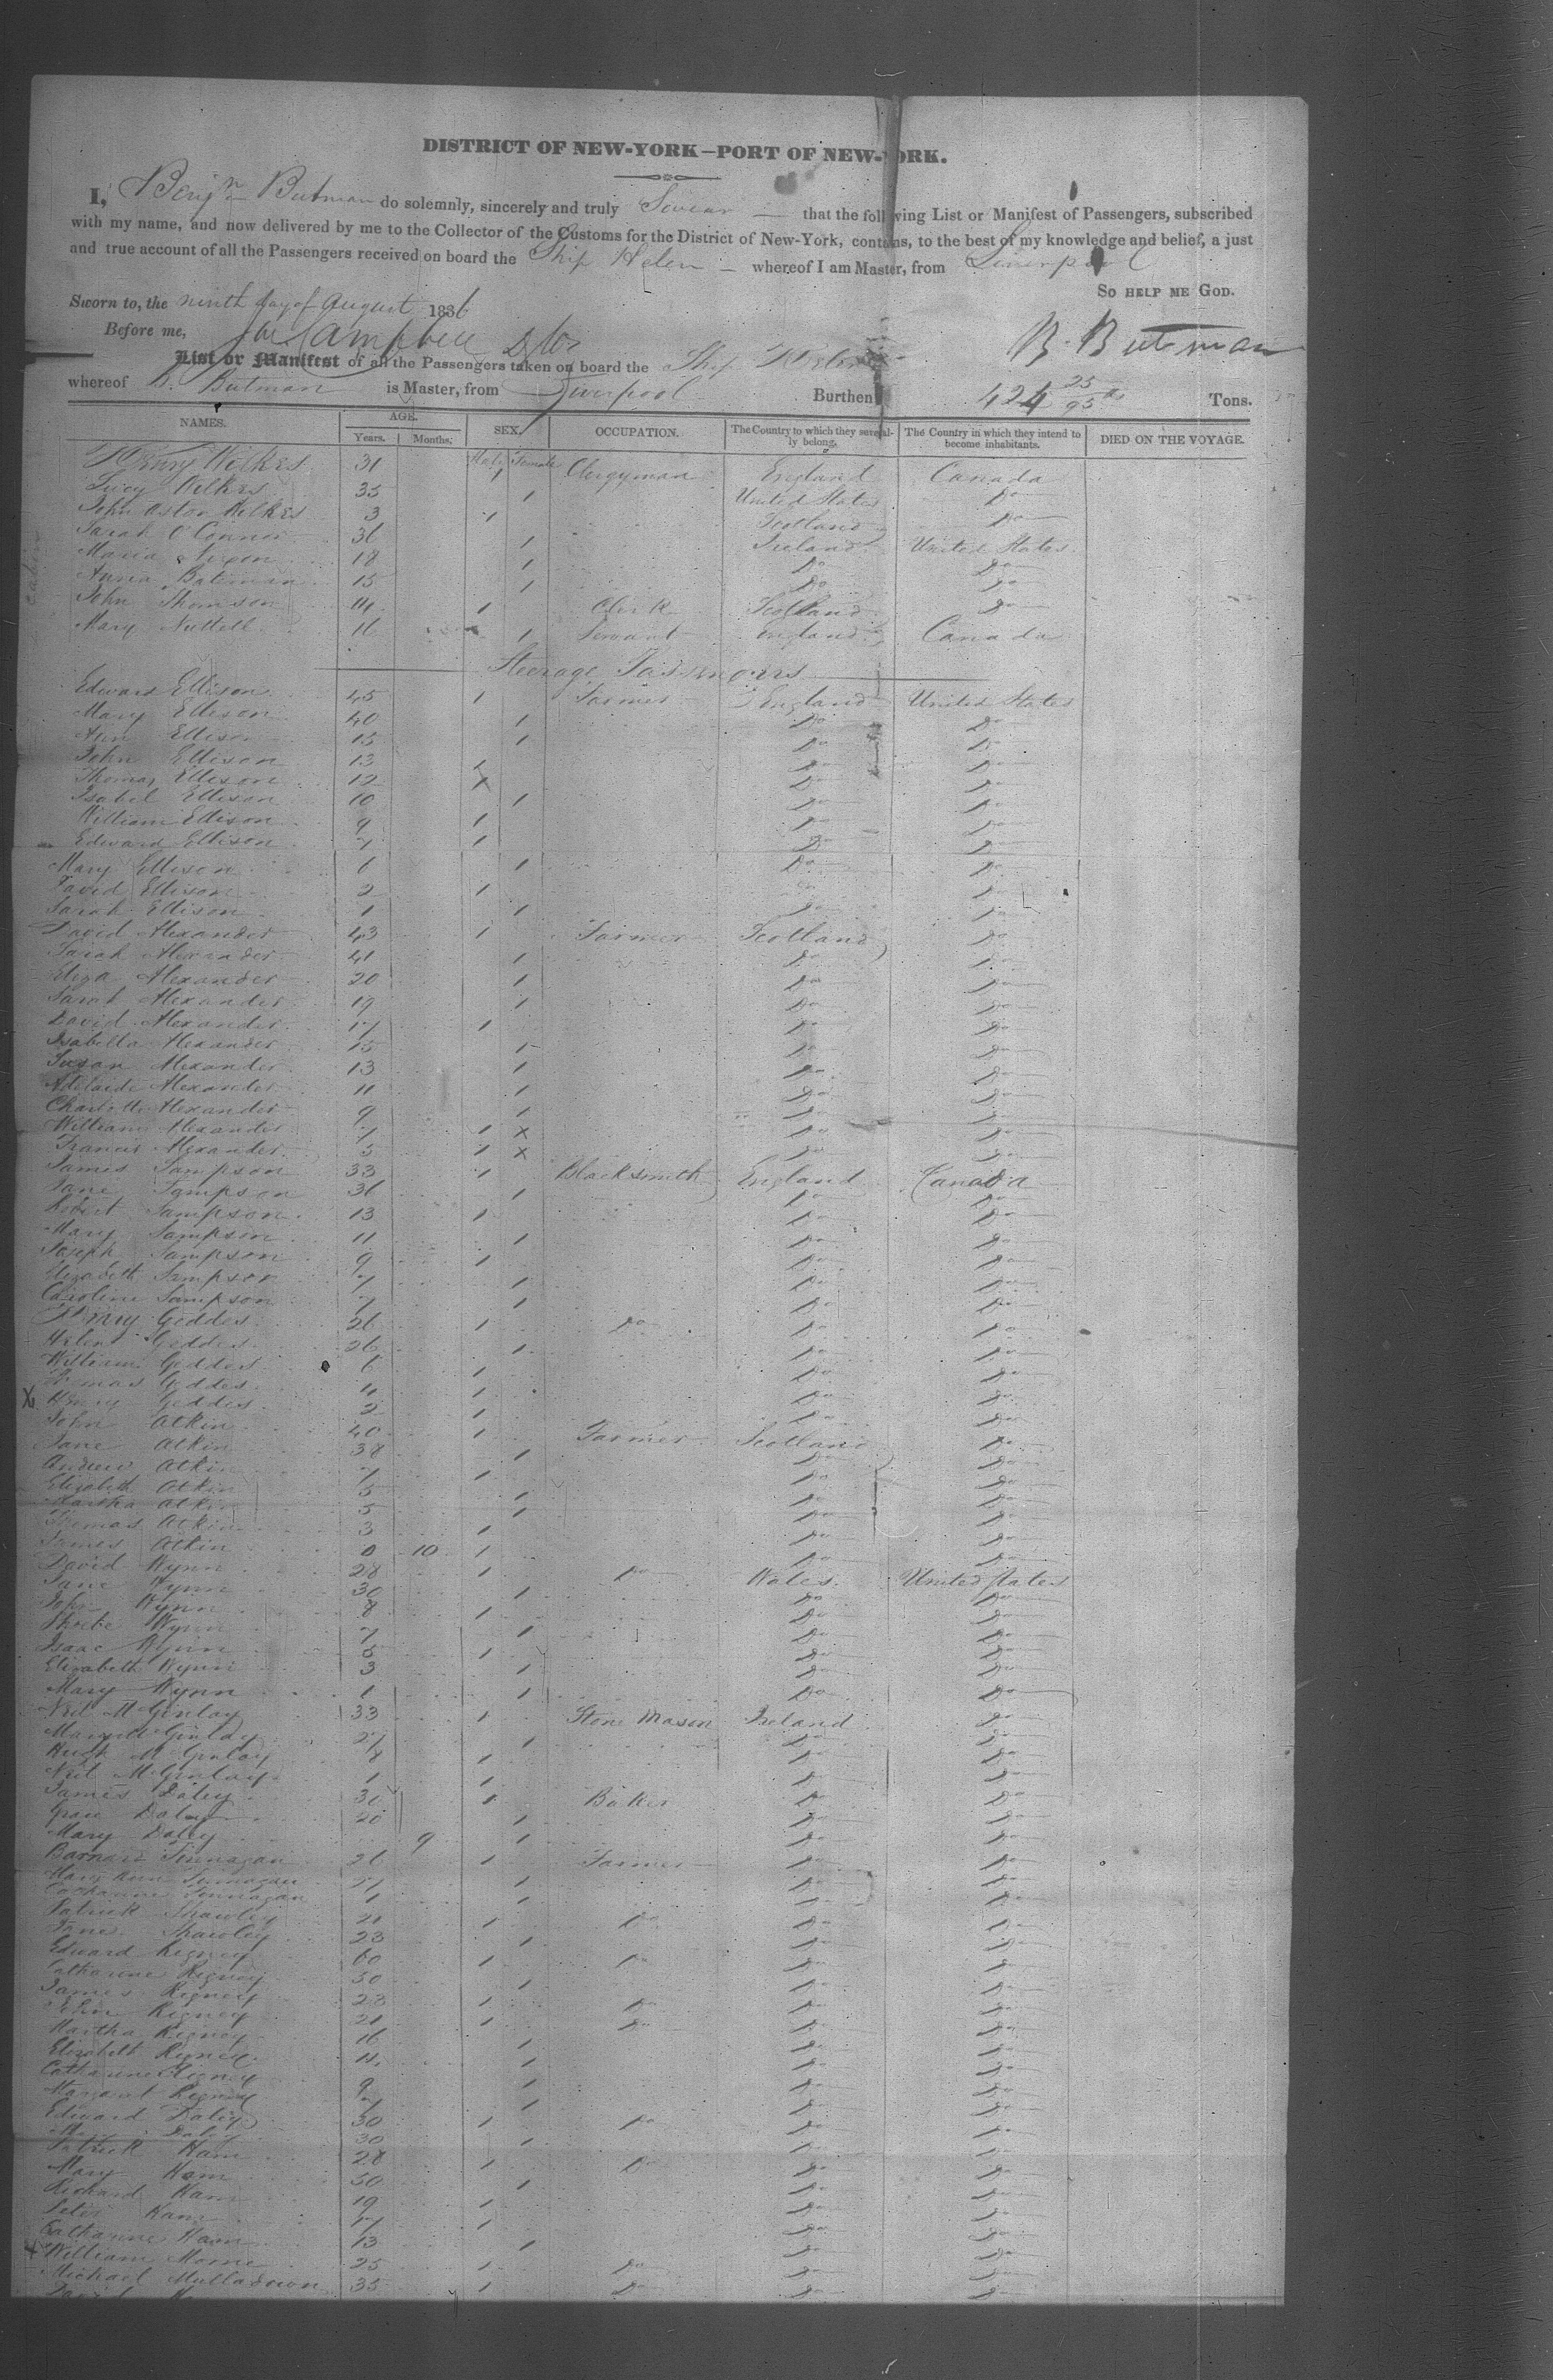 DISTRICT OF NEW-YORK—PORT OF NEW-YORK.
I, Benjn Butman do solemnly, sincerely and truly Swear — that the following List or Manifest of Passengers, subscribed
with my name, and now delivered by me to the Collector of the Customs for the District of New-York, contains, to the best of my knowledge and belief, a just
and true account of all the Passengers received on board the Ship Helen — whereof I am Master, from Liverpool
So HELP ME GOD.
Sworn to, the ninth day of August 1836
Before me, Campbell B. Butman
List or Manifest of all the Passengers taken on board the Ship Helen
whereof B. Butman is Master, from Liverpool Burthen 424 25/95ths Tons.
NAMES. AGE. SEX. OCCUPATION. The Country to which they severally belong. The Country in which they intend to become inhabitants. DIED ON THE VOYAGE.
Years. Months. Male Female
Henry Wilkes 31 1 Clergyman England Canada
Lucy Wilkes 35 1 United States Do
John Aston Wilkes 3 1 Scotland Do
Sarah O'Connor 36 1 Ireland United States
Maria 18 1 Do Do
Anna Bateman 15 1 Do Do
John Thomson 14 1 Clerk Scotland Do
Mary Nuttell 16 1 Servant England Canada
Steerage Passengers
Edward Ellison 45 1 Farmer England United States
Mary Ellison 40 1 Do Do
Ann Ellison 15 1 Do Do
John Ellison 13 1 Do Do
Thomas Ellison 12 X Do Do
Isabel Ellison 10 1 Do Do
William Ellison 9 1 Do Do
Edward Ellison 7 1 Do Do
Mary Ellison 6 1 Do Do
David Ellison 2 1 Do Do
Sarah Ellison 1 1 Do Do
David Alexander 43 1 Farmer Scotland Do
Sarah Alexander 41 1 Do Do
Eliza Alexander 20 1 Do Do
Sarah Alexander 19 1 Do Do
David Alexander 17 1 Do Do
Isabella Alexander 15 1 Do Do
Susan Alexander 13 1 Do Do
Adelaide Alexander 11 1 Do Do
Charlotte Alexander 9 1 Do Do
William Alexander 7 1 X Do Do
Francis Alexander 5 1 X Do Do
James Sampson 33 1 Blacksmith England Canada
Jane Sampson 36 1 Do Do
Robert Sampson 13 1 Do Do
Mary Sampson 11 1 Do Do
Joseph Sampson 9 1 Do Do
Elizabeth Sampson 7 1 Do Do
Caroline Sampson 7 1 Do Do
Henry Geddes 26 1 Do Do Do
Helen Geddes 26 1 Do Do
William Geddes 6 1 Do Do
Thomas Geddes 4 1 Do Do
X Henry Geddes 2 1 Do Do
John Atkin 40 1 Farmer Scotland Do
Jane Atkin 38 1 Do Do
Andrew Atkin 7 1 Do Do
Elizabeth Atkin 5 1 Do Do
Martha Atkin 5 1 Do Do
Thomas Atkin 3 1 Do Do
James Atkin 0 10 1 Do Do
David Wynn 28 1 Do Wales United States
Jane Wynn 30 1 Do Do
John Wynn 8 1 Do Do
Phoebe Wynn 7 1 Do Do
Isaac Wynn 5 1 Do Do
Elizabeth Wynn 3 1 Do Do
Mary Wynn 1 1 Do Do
Neil McGinlay 33 1 Stone Mason Ireland Do
McGinlay 27 1 Do Do
Hugh McGinlay 8 1 Do Do
Neil McGinlay 1 1 Do Do
James Daley 30 1 Baker Do Do
Grace Daley 20 1 Do Do
Mary Daley 9 1 Do Do
Barnard Finnagan 26 1 Farmer Do Do
Mary Ann Finnagan 27 1 Do Do
Catharine Finnagan 1 1 Do Do
Patrick Shawley 21 1 Do Do Do
Jane Shawley 23 1 Do Do
Edward Rigney 60 1 Do Do Do
Catharine Rigney 50 1 Do Do
James Rigney 23 1 Do Do Do
John Rigney 21 1 Do Do Do
Martha Rigney 16 1 Do Do
Elizabeth Rigney 11 1 Do Do
Catharine Rigney 9 1 Do Do
Margaret Rigney 7 1 Do Do
Edward Daley 30 1 Do Do Do
Daley 30 1 Do Do
Patrick Ham 28 1 Do Do Do
Mary Ham 50 1 Do Do
Richard Ham 19 1 Do Do
Peter Ham 17 1 Do Do
Catharine Ham 13 1 Do Do
William 25 1 Do Do Do
Michael 35 1 Do Do Do